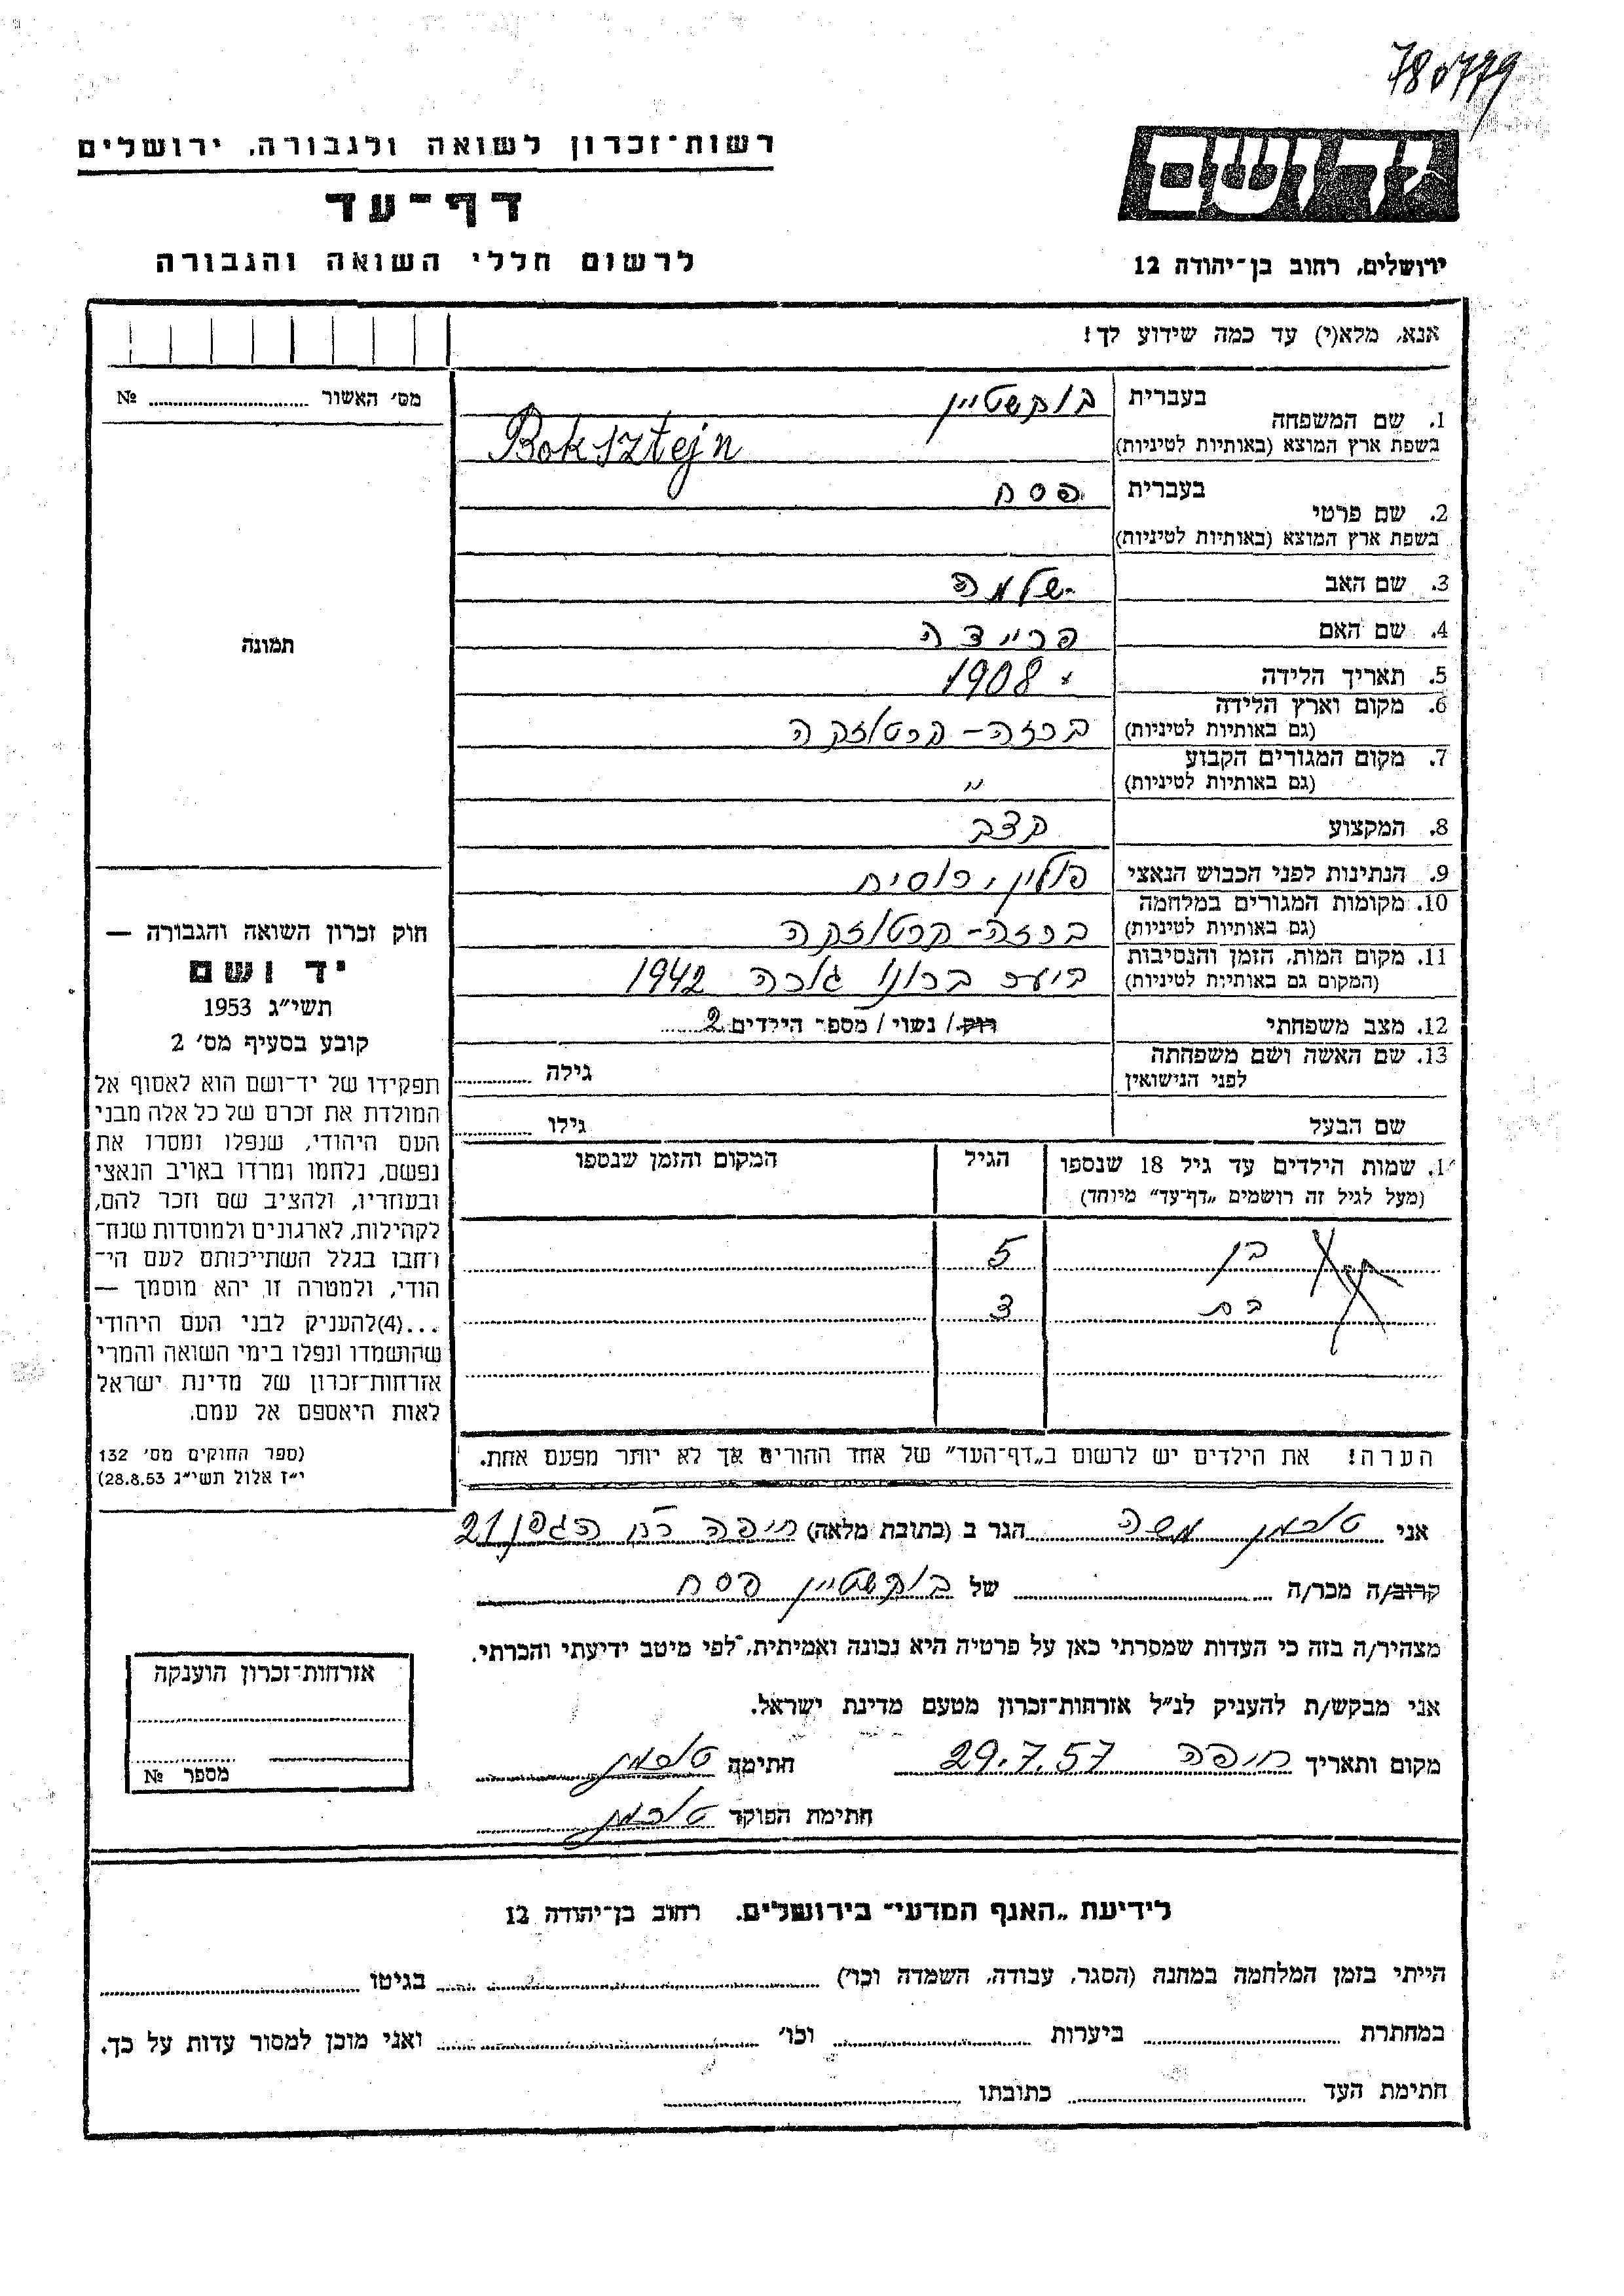 780779
רשות־זכרון לשואה ולגבורה, ירושלים
דף־עד
לרשום חללי השואה והגבורה
ידושם
ירושלים, רחוב בן־יהודה 12
אנא, מלא(י) עד כמה שידוע לך!
מס׳ האשור № 
1. שם המשפחה בעברית בוקשטיין
בשפת ארץ המוצא (באותיות לטיניות) Boksztejn
2. שם פרטי בעברית פסח
בשפת ארץ המוצא (באותיות לטיניות)
3. שם האב שלמה
4. שם האם פריידה
5. תאריך הלידה 1908
6. מקום וארץ הלידה
(גם באותיות לטיניות) ברזה - קרטוזקה
7. מקום המגורים הקבוע
(גם באותיות לטיניות) "
8. המקצוע קצב
9. הנתינות לפני הכבוש הנאצי פולין, רוסיה
10. מקומות המגורים במלחמה
(גם באותיות לטיניות) ברזה - קרטוזקה
11. מקום המות, הזמן והנסיבות
(המקום גם באותיות לטיניות) ביער ברונו גורה 1942
12. מצב משפחתי רוק / נשוי / מספר הילדים 2
13. שם האשה ושם משפחתה
לפני הנישואין גילה
שם הבעל גילו
תמונה
חוק זכרון השואה והגבורה —
יד ושם
תשי״ג 1953
קובע בסעיף מס׳ 2
תפקידו של יד־ושם הוא לאסוף אל
המולדת את זכרם של כל אלה מבני
העם היהודי, שנפלו ומסרו את
נפשם, נלחמו ומרדו באויב הנאצי
ובעוזריו, ולהציב שם וזכר להם,
לקהילות, לארגונים ולמוסדות שנח־
רחבו בגלל השתייכותם לעם הי־
הודי, ולמטרה זו יהא מוסמך —
...(4)להעניק לבני העם היהודי
שהושמדו ונפלו בימי השואה והמרי
אזרחות־זכרון של מדינת ישראל
לאות היאספם אל עמם.
(ספר החוקים מס׳ 132
י״ז אלול תשי״ג 28.8.53)
1. שמות הילדים עד גיל 18 שנספו הגיל המקום והזמן שנספו
(מעל לגיל זה רושמים „דף־עד״ מיוחד)
בן 5
בת 3
הערה! את הילדים יש לרשום ב„דף־העד״ של אחד ההורים אך לא יותר מפעם אחת.
אני טוכמן משה הגר ב (כתובת מלאה) חיפה רח הגפן 21
קרוב/ה מכר/ה של בוקשטיין פסח
מצהיר/ה בזה כי העדות שמסרתי כאן על פרטיה היא נכונה ואמיתית, לפי מיטב ידיעתי והכרתי.
אני מבקש/ת להעניק לנ״ל אזרחות־זכרון מטעם מדינת ישראל.
מקום ותאריך חיפה 29.7.57 חתימה טוכמן
חתימת הפוקד טוכמן
אזרחות־זכרון הוענקה
מספר №
לידיעת „האגף המדעי״ בירושלים. רחוב בן־יהודה 12
הייתי בזמן המלחמה במחנה (הסגר, עבודה, השמדה וכו׳) בגיטו
במחתרת ביערות וכו׳ ואני מוכן למסור עדות על כך.
חתימת העד כתובתו